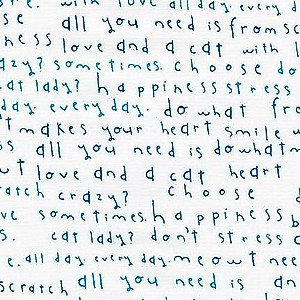 with love all day. every da
se all you need is from sc
ness love and a cat with l
azy? sometimes. choose do
cat lady? happiness stress
day. every day. do what fro
't makes your heart smile w
ss all you need is do what m
out love and a cat heart
ratch crazy? choose d
ve sometimes. happiness b
s. cat lady? don't stress c
e. all day. every day. meout nee
scratch all you need is an